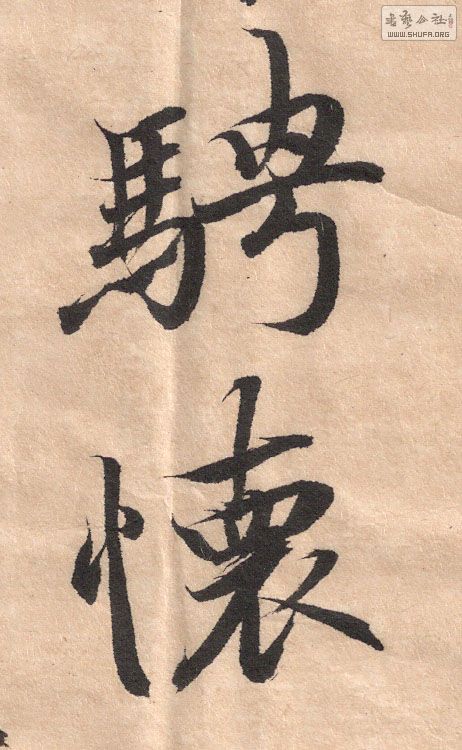 騁
懷
书艺公社
WWW.SHUFA.ORG